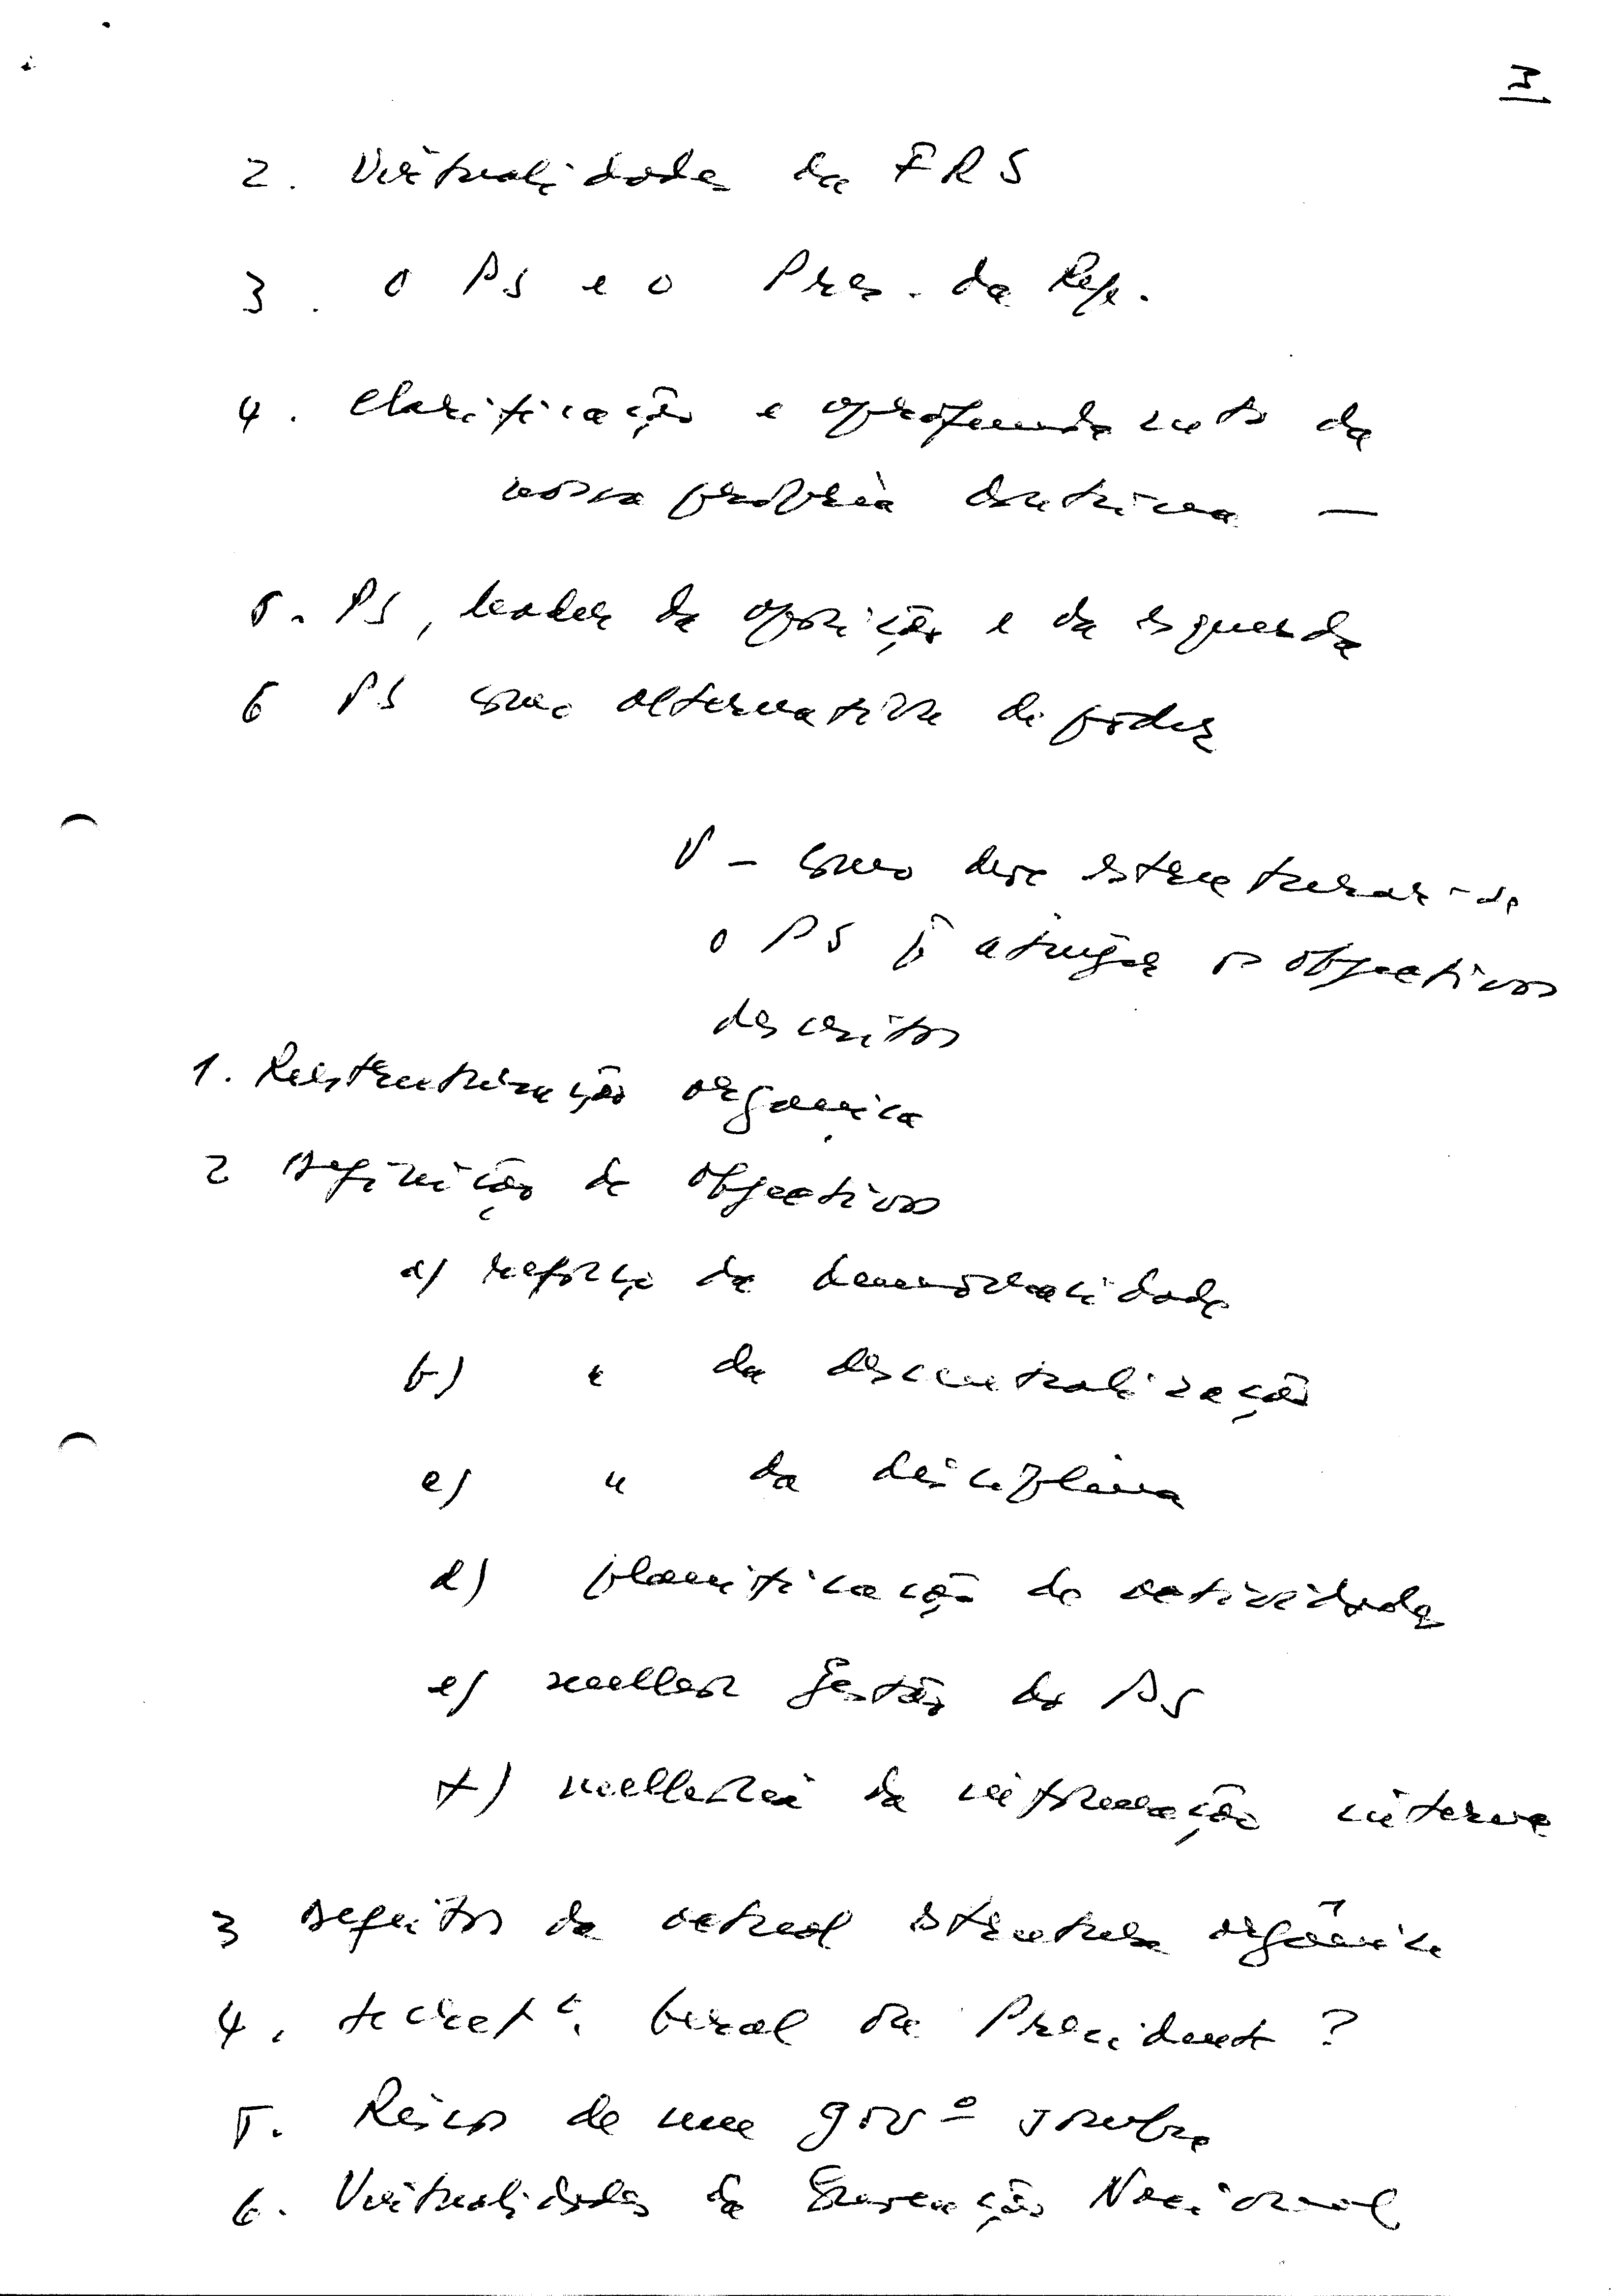 3
2. Virtualidades da FRS
3. O PS e o Pres. da Rep.
4. Clarificação e aprofundamento da
nossa própria doutrina —
5. PS, leader da oposição e da esquerda
6 PS como alternativa de poder
V – como deve estruturar-se
o PS p. atingir os objectivos
descritos
1. Reestruturação orgânica
2 Definição de objectivos
a) reforço da democraticidade
b) " da descentralização
c) " da disciplina
d) planificação de actividades
e) melhor gestão do PS
f) melhoria da informação interna
3 Defeitos da actual estrutura orgânica
4. Secretº. Geral ou Presidente?
5. Riscos de um govº sombra
6. Virtualidades da Convenção Nacional